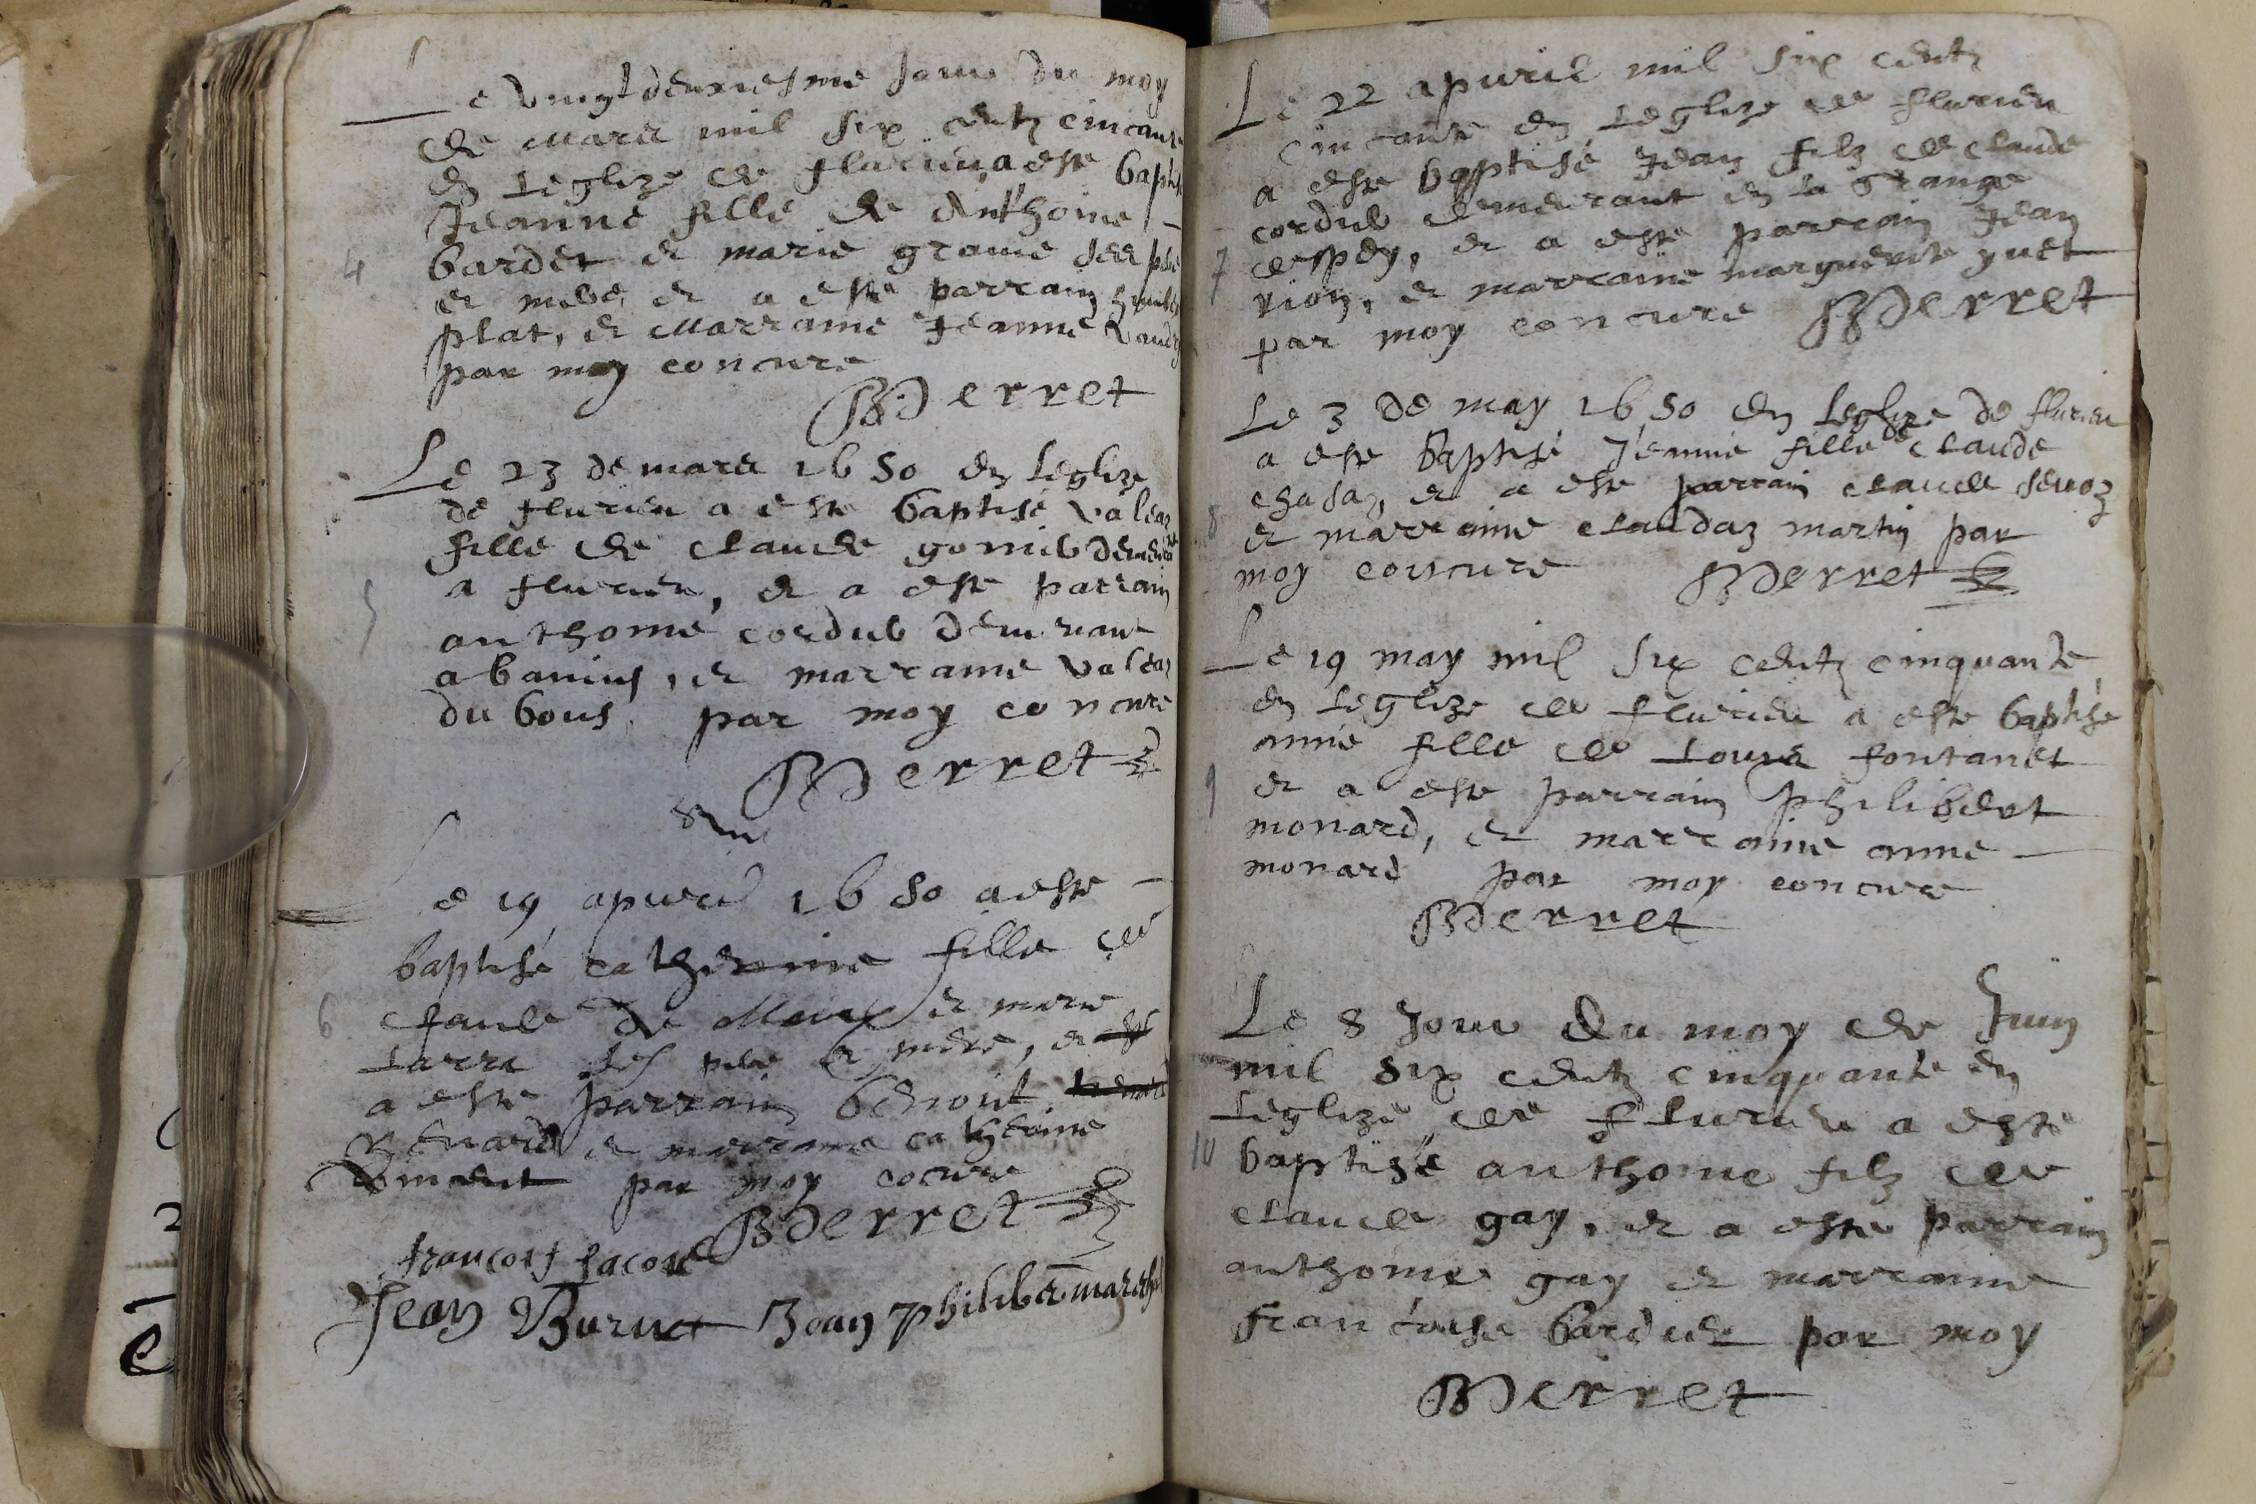 Le vingtdeuxiesme jour du moy
de Mars mil six centz cincante
en leglize de flurieu a este baptisé
Jeanne fille de Anthoine
4 bardet et marie grome ses pere
et mere, et a este parrain
plat, et Marraine Jeanne
par moy concure
BDerret
Le 23 de mars 1650 en leglize
de flurieu a este baptisé valeaz
fille de claude
5 a flurieu, et a este parrain
anthoine cordub demurant
a banius, et marraine valeaz
du bous par moy concure
BDerret
Le 19 apuril 1650 a este
baptisé catherine fille de
6 claude de et marie
larra ses pere et mere, et
a este parrain benoit
Renard et marraine catherine
par moy cocure
BDerret
francois lacour
Jean Burnet Jean philibert mareschal
Le 22 apuril mil six centz
cincante en leglize de flurieu
a este baptisé Jean filz de claude
cordub demeurant en la grange
7 despey, et a este parrain Jean
rion, et marraine marguerite yuet
par moy concure BDerret
Le 3 de may 1650 en leglize de flurieu
a este baptisé Jeanne fille de claude
chasaz, et a este parrain claude seuoz
8 et marraine claudaz martin par
moy concure BDerret
Le 19 may mil six centz cinquante
en leglize de flurieu a este baptisé
anne fille de Louis fontanet
9 et a este parrain philibert
monard, et marraine anne
monard par moy concure
BDerret
Le 8 Jour du moy de Juin
mil six centz cinquante en
leglize de flurieu a este
10 baptisé anthoine filz de
claude gay, et a este parrain
anthoine gay et marraine
francoise bardet par moy
BDerret